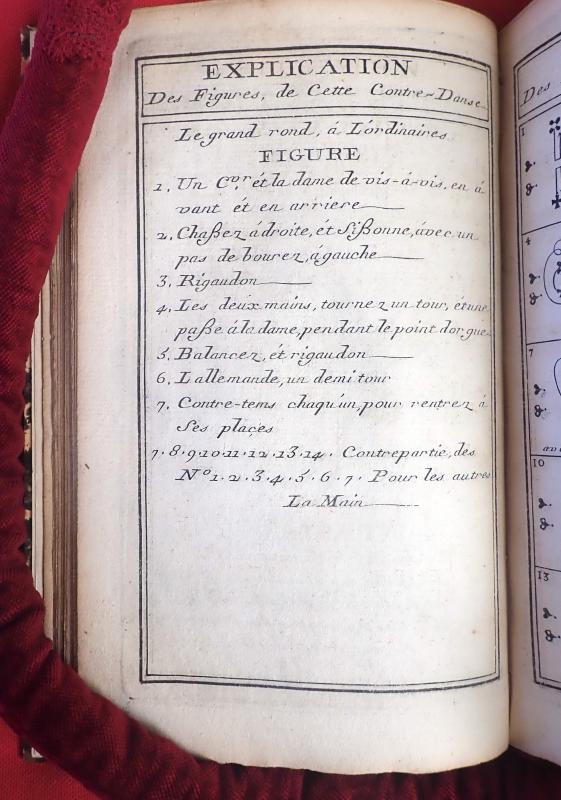 EXPLICATION
Des Figures, de Cette Contre-Danse
Le grand rond, á L'ordinaires
FIGURE
1, Un Cvr. ét la dame de vis-á-vis, en á
vant ét en arriere
2, Chaßez ádroite, ét Sißonne, ávec un
pas de bourez, ágauche
3, Rigaudon
4, Les deux mains, tournez un tour, ét une
paße ála dame, pendant le point d'orgue
5, Balancez, ét rigaudon
6, L'allemande, un demi tour
7, Contre-tems chaqu'un, pour rentrez á
Ses places
7. 8. 9. 10. 11. 12. 13. 14. Contrepartie, des
No 1. 2. 3. 4. 5. 6. 7. Pour les autres
La Main
Des
1
4
7
10
13